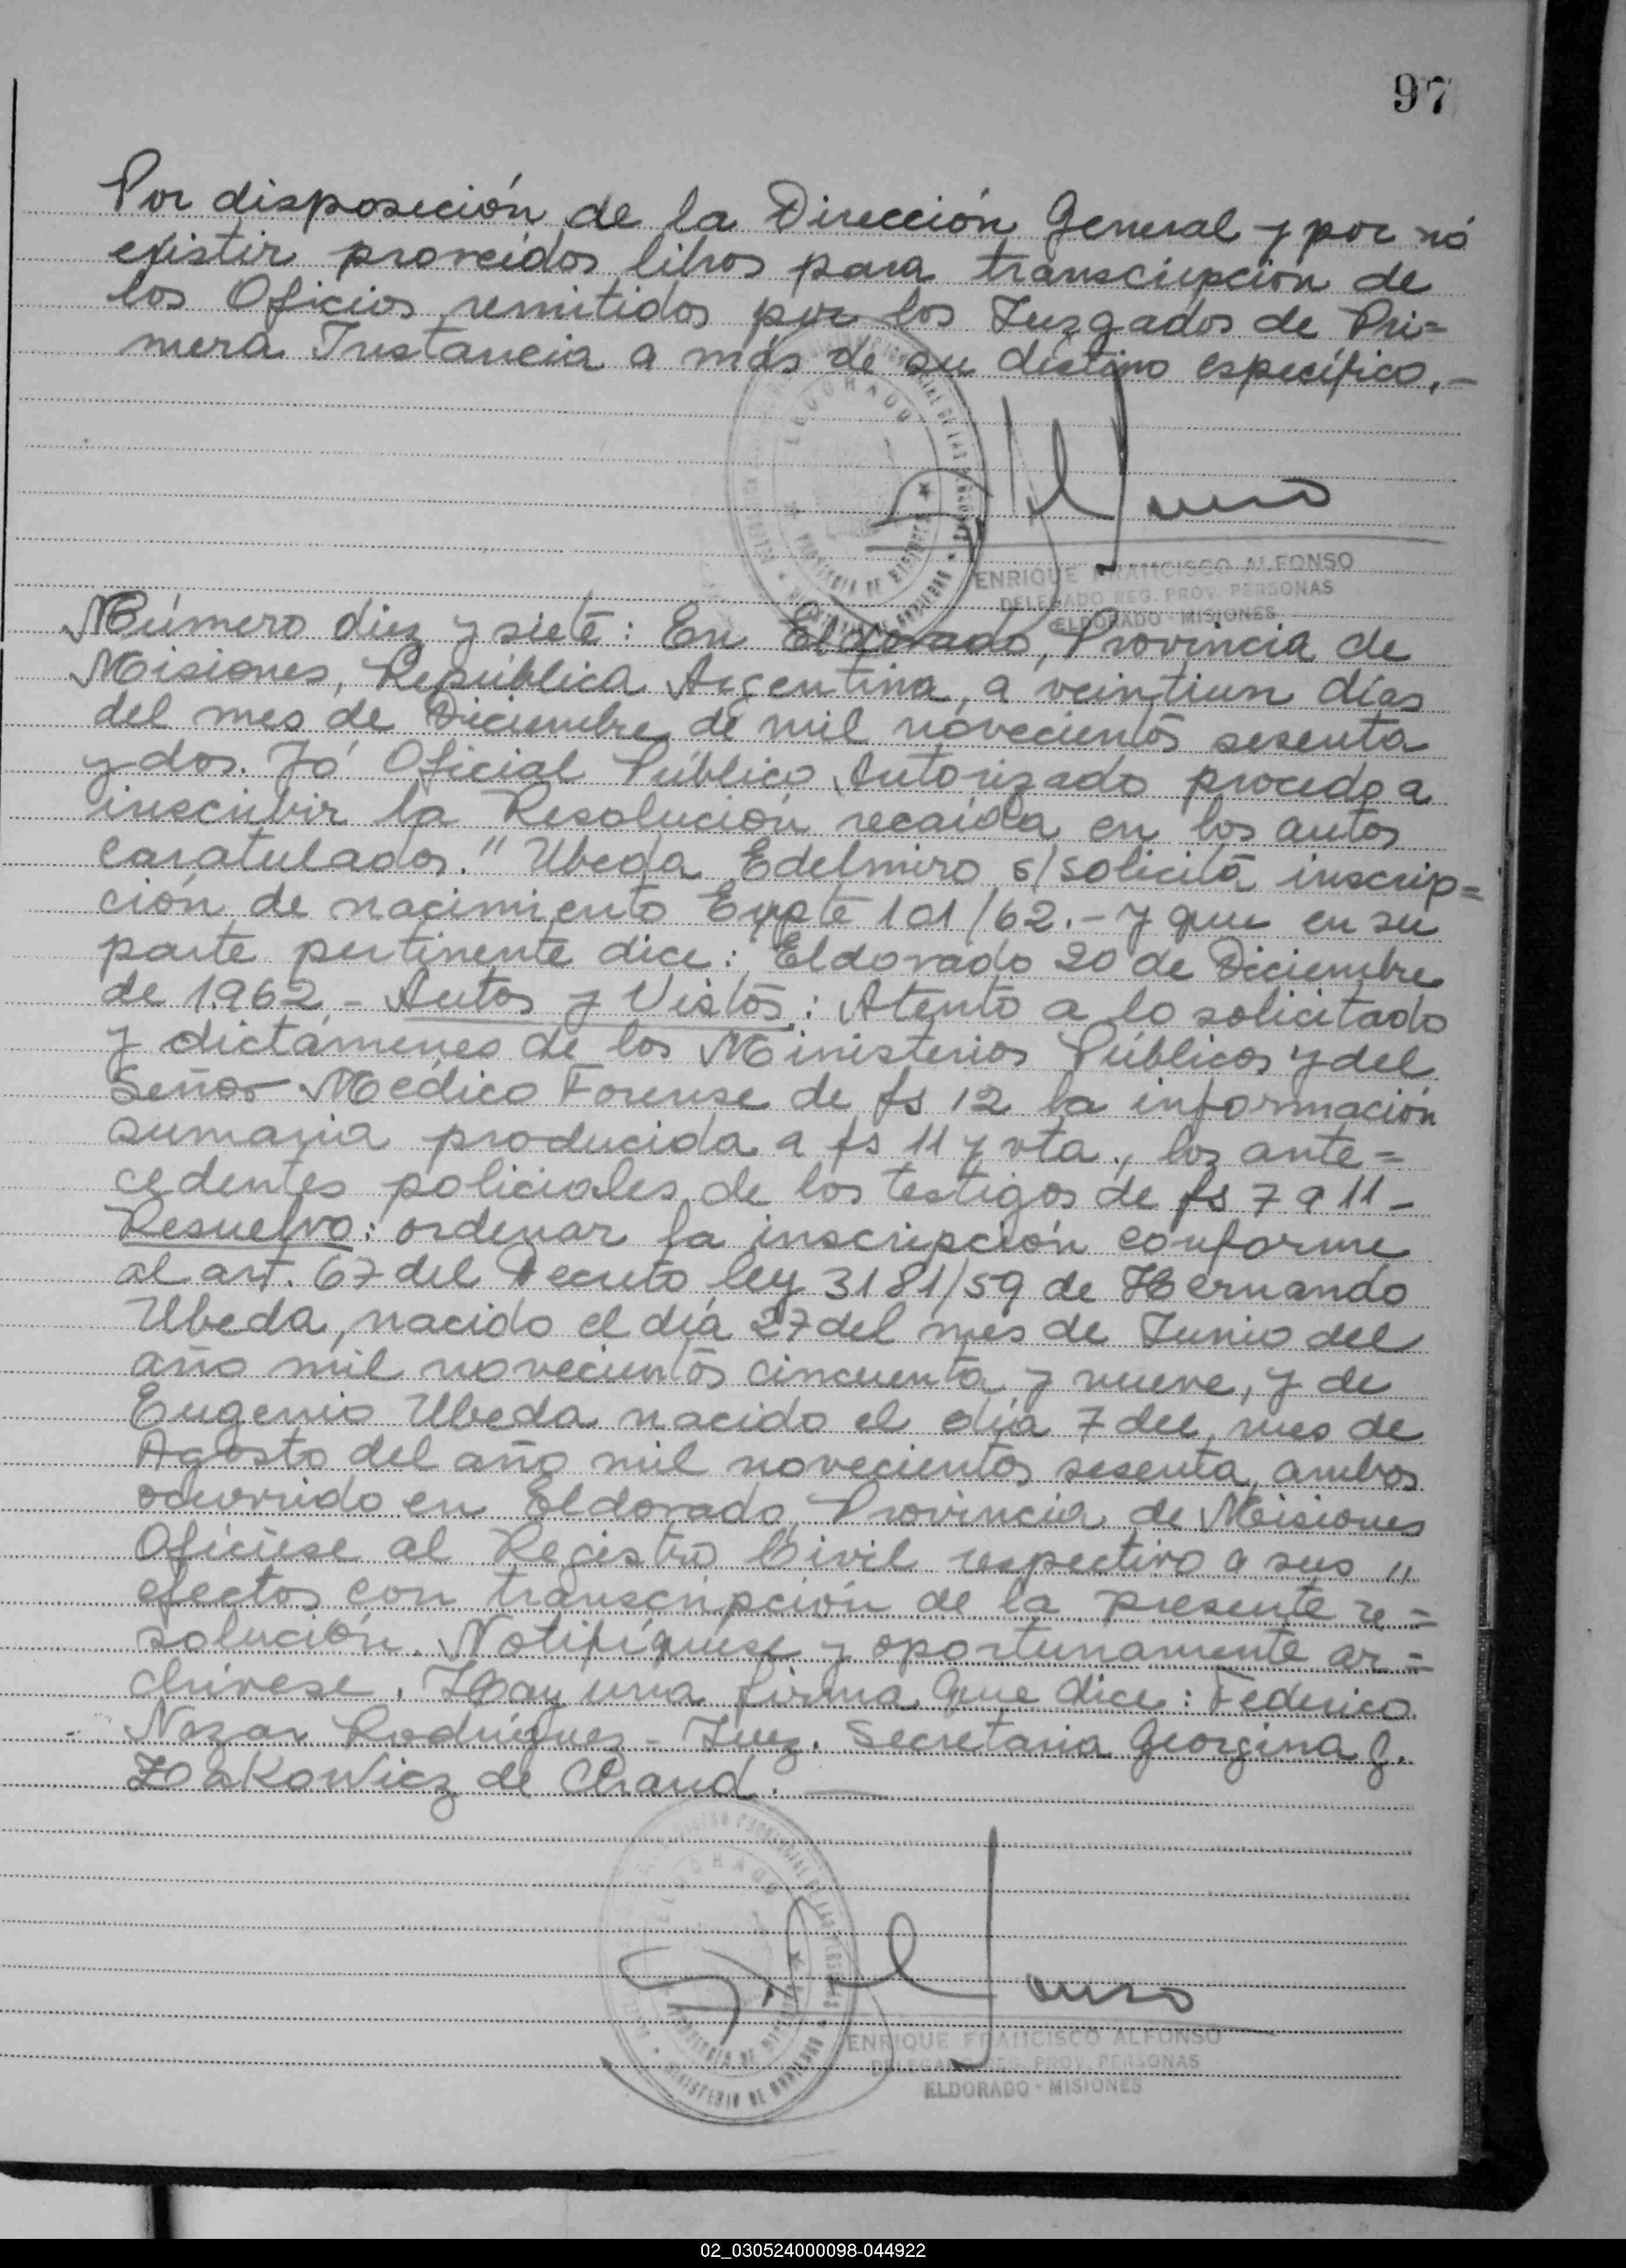 97
Por disposición de la Dirección General y por nó
existir proveídos libros para transcripción de
los Oficios remitidos por los Juzgados de Pri=
mera Instancia a más de su destino específico.-
ELDORADO
PROVINCIA DE MISIONES
ENRIQUE FRANCISCO ALFONSO
DELEGADO REG. PROV. PERSONAS
ELDORADO - MISIONES
Número diez y siete: En Eldorado, Provincia de
Misiones, República Argentina, a veintiun días
del mes de Diciembre de mil novecientos sesenta
y dos. Yó Oficial Público Autorizado procedo a
inscribir la Resolución recaída en los autos
caratulados." Ubeda Edelmiro s/solicita inscrip=
ción de nacimiento Expte 101/62.- y que en su
parte pertinente dice: Eldorado 20 de Diciembre
de 1.962 - Autos y Vistos: Atento a lo solicitado
y dictámenes de los Ministerios Públicos y del
Señor Médico Forense de fs 12 la información
sumaria producida a fs 11 y vta., los ante=
cedentes policiales de los testigos de fs 7 a 11 -
Resuelvo: ordenar la inscripción conforme
al art. 67 del Decreto ley 3181/59 de Hernando
Ubeda, nacido el día 27 del mes de Junio del
año mil novecientos cincuenta y nueve, y de
Eugenio Ubeda nacido el día 7 del mes de
Agosto del año mil novecientos sesenta, ambos
ocurrido en Eldorado, Provincia de Misiones
Ofíciese al Registro Civil respectivo a sus "
efectos con transcripción de la presente re=
solución. Notifíquese y oportunamente ar=
chívese. Hay una firma que dice: Federico
Nozar Rodríguez - Juez. Secretaria Georgina J.
de Chaud.
ELDORADO
ENRIQUE FRANCISCO ALFONSO
DELEGADO REG. PROV. PERSONAS
ELDORADO - MISIONES
02_030524000098-044922